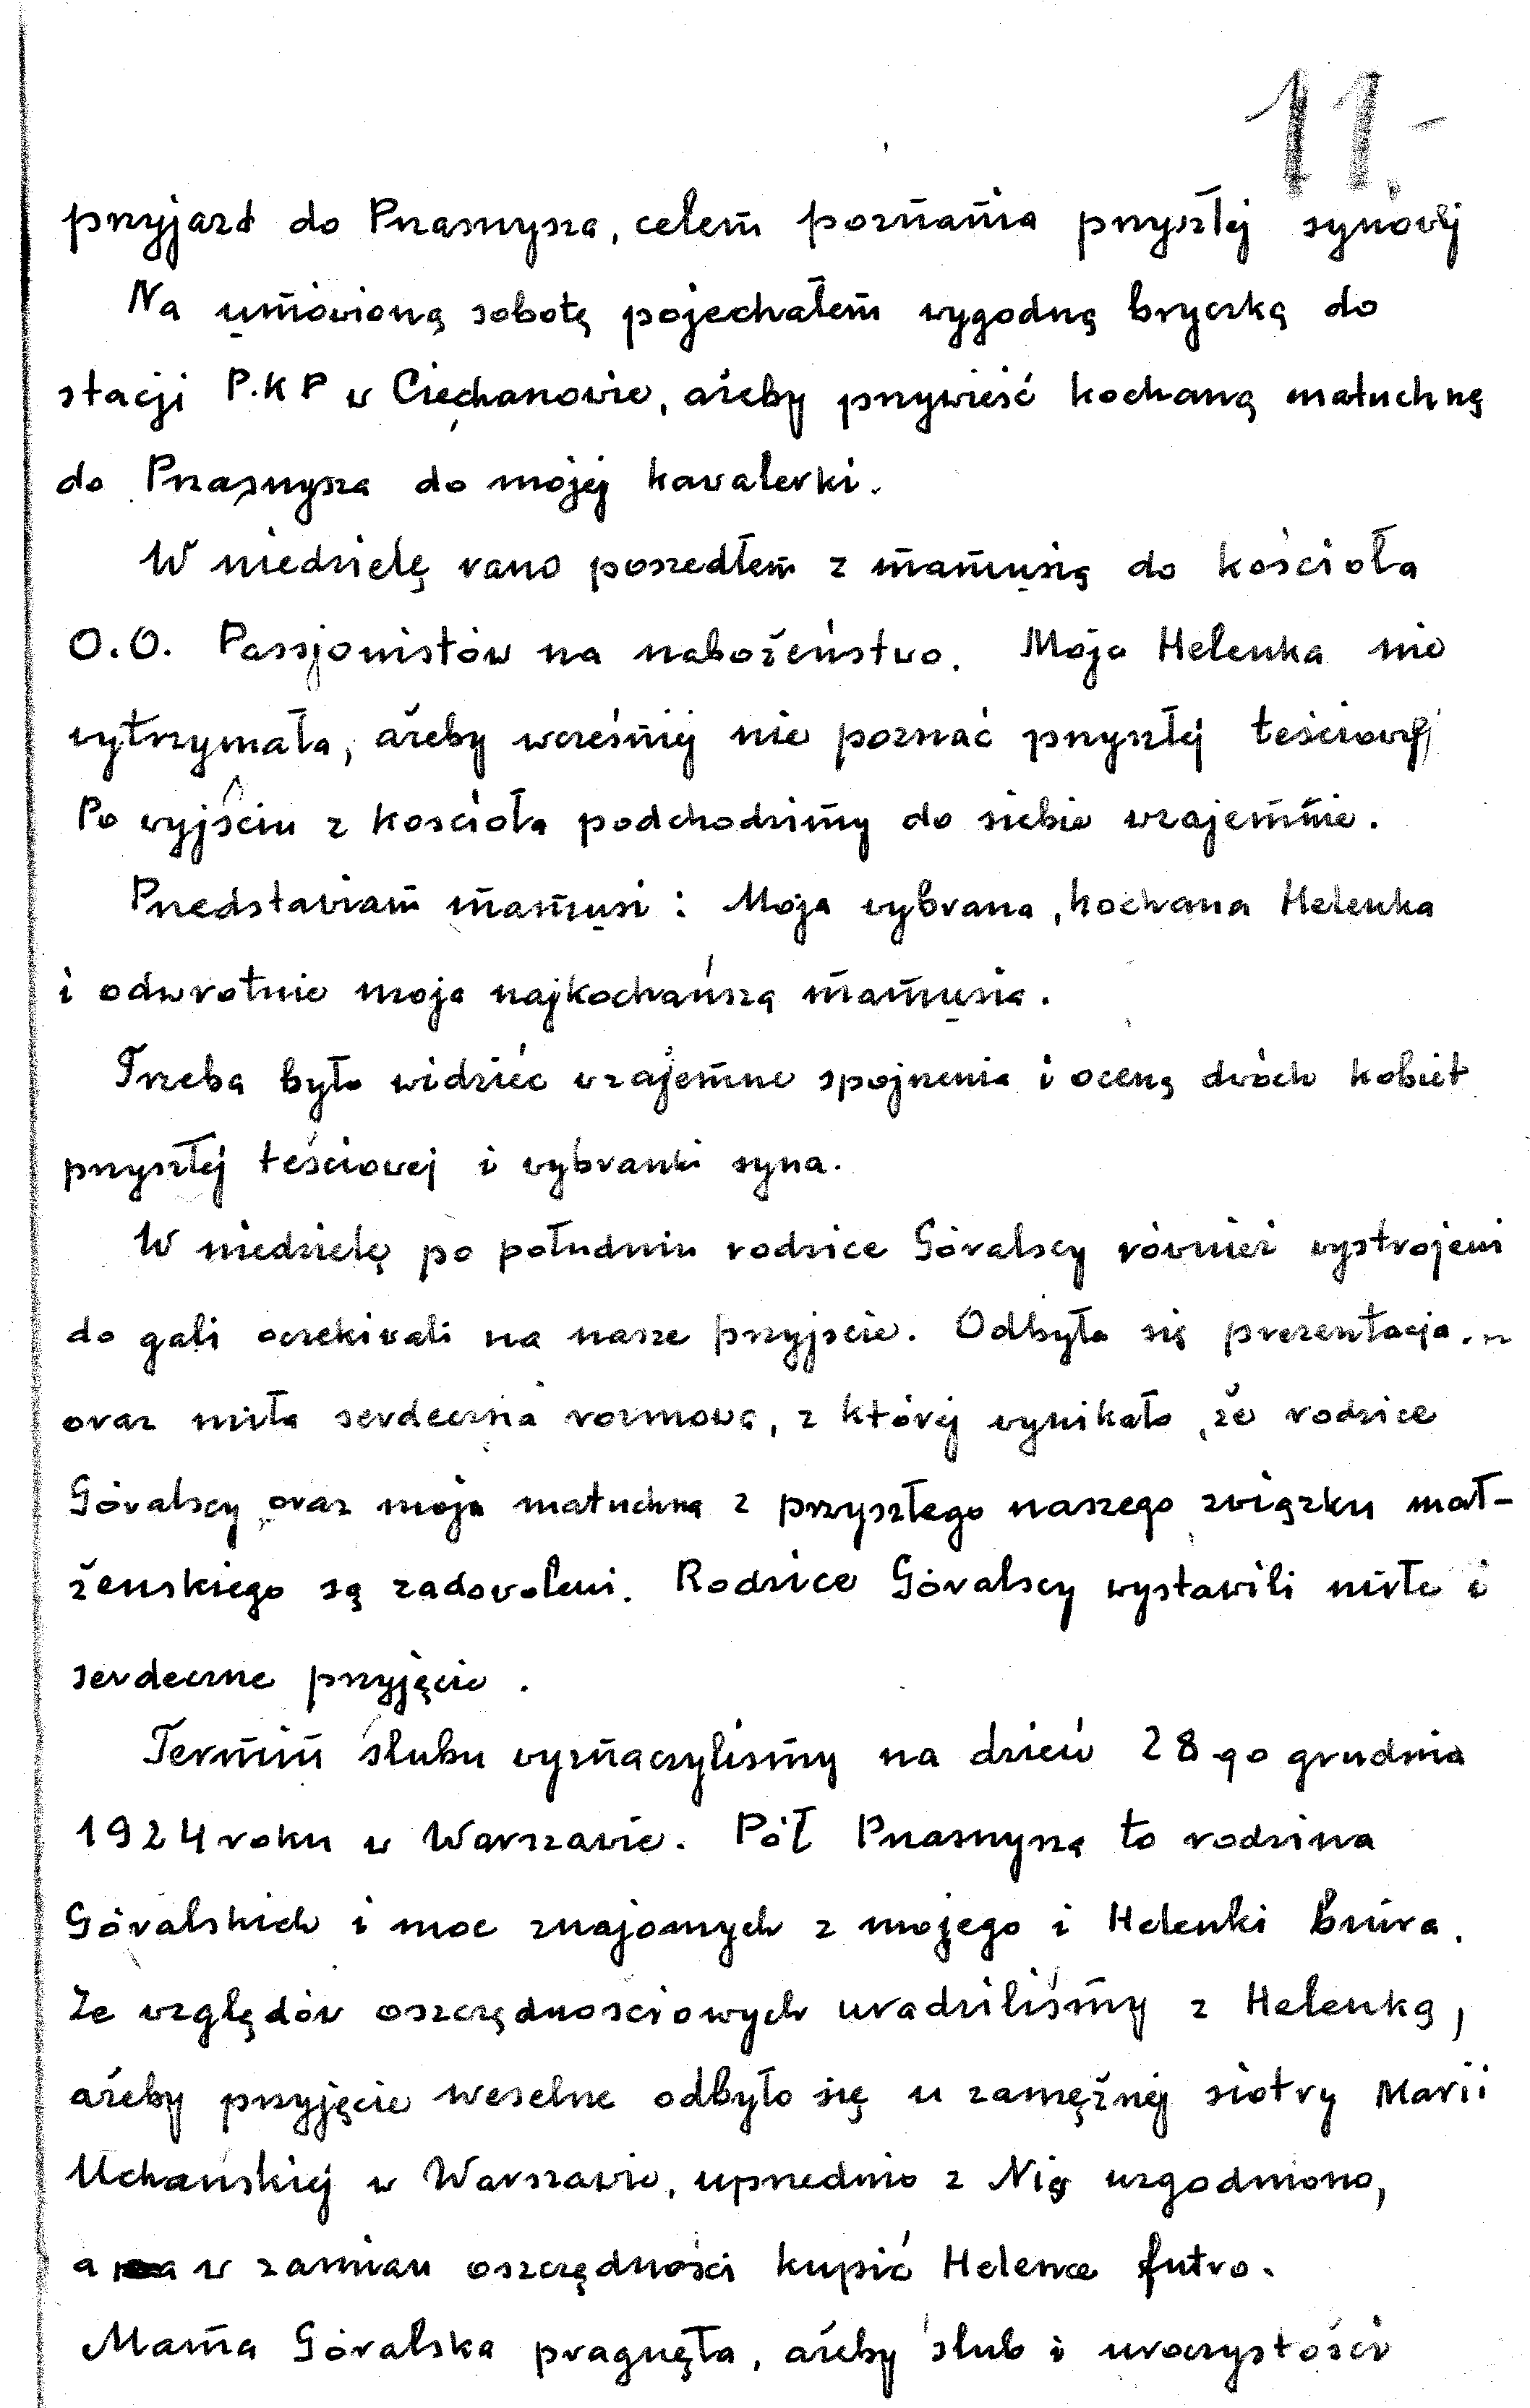 11.-
przyjazd do Przasnysza, celem poznania przyszłej synowej
Na umówioną sobotę pojechałem wygodną bryczką do
stacji P.K P w Ciechanowie, ażeby przywieść kochaną matuchnę
do Przasnysza do mojej kawalerki.
W niedzielę rano poszedłem z mamusią do kościoła
O.O. Passjonistów na nabożeństwo. Moja Helenka nie
wytrzymała, ażeby wcześniej nie poznać przyszłej teściowej
Po wyjściu z koscioła podchodzimy do siebie wzajemnie.
Przedstawiam mamusi : Moja wybrana, kochana Helenka
i odwrotnie moja najkochańsza mamusia.
Trzeba było widzieć wzajemne spojrzenia i oceną dwóch kobiet
przyszłej teściowej i wybranki syna.
W niedzielę po południu rodzice Góralscy również wystrojeni
do gali oczekiwali na nasze przyjscie. Odbyła się prezentacja.
oraz miła serdeczna rozmowa, z której wynikało, że rodzice
Góralscy oraz moja matuchna z przyszłego naszego związku mał-
żenskiego są zadowoleni. Rodzice Góralscy wystawili miłe i
serdeczne przyjęcie.
Termin ślubu wyznaczylismy na dzień 28-go grudnia
1924 roku w Warszawie. Pół Przasnysza to rodzina
Góralskich i moc znajomych z mojego i Helenki biura.
Ze względów oszczędnosciowych uradziliśmy z Helenką,
ażeby przyjęcie weselne odbyło się u zamężnej siotry Marii
Uchańskiej w Warszawie, uprzednio z Nią uzgodniono,
a w zamian oszczędności kupić Helence futro.
Mama Góralska pragnęła, ażeby ślub i uroczystości